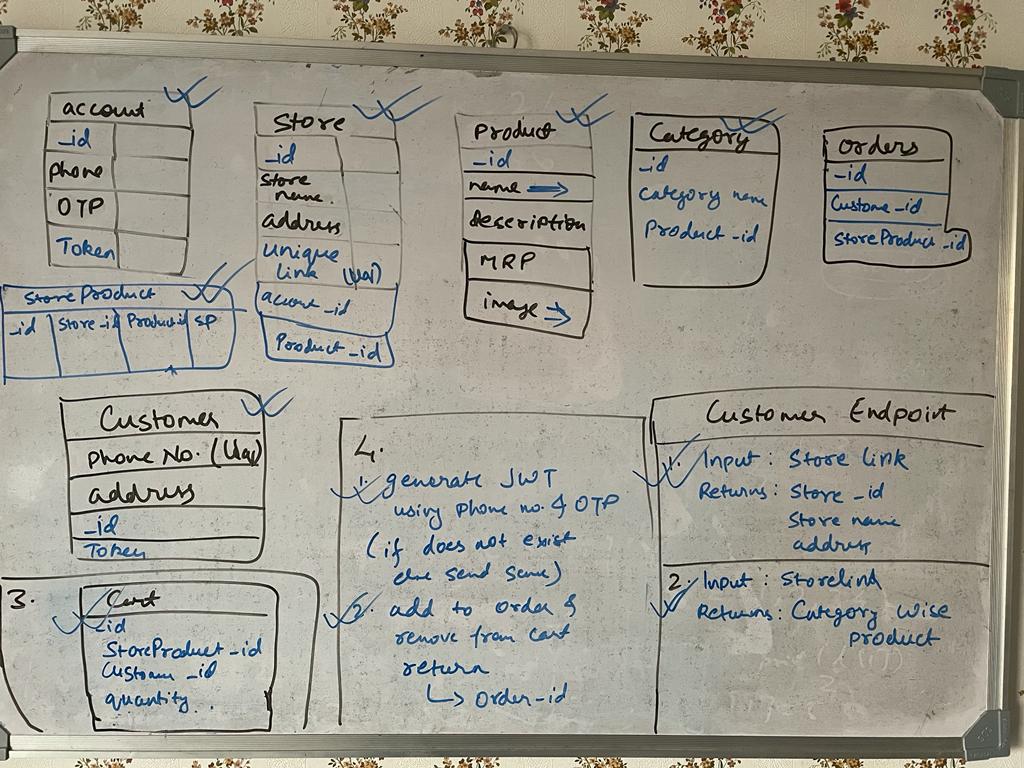 account
_id
phone
OTP
Token
Store
_id
Store
name.
address
unique
link (Val)
account_id
Product_id
Product
_id
name →
description
MRP
image →
Category
_id
Category name
Product_id
orders
_id
Custome_id
storeProduct_id
Store Product
_id
Store_id
Product_id
SP
Customer
phone No. (Val)
address
_id
Token
3.
Cart
_id
StoreProduct_id
Custome_id
quantity..
4.
1. generate JWT
using phone no. & OTP
(if does not exist
else send same)
2. add to order &
remove from cart
return
↳ order_id
Customer Endpoint
1. Input: Store link
Returns: Store _id
Store name
address
2. Input: Storelink
Returns: Category wise
product